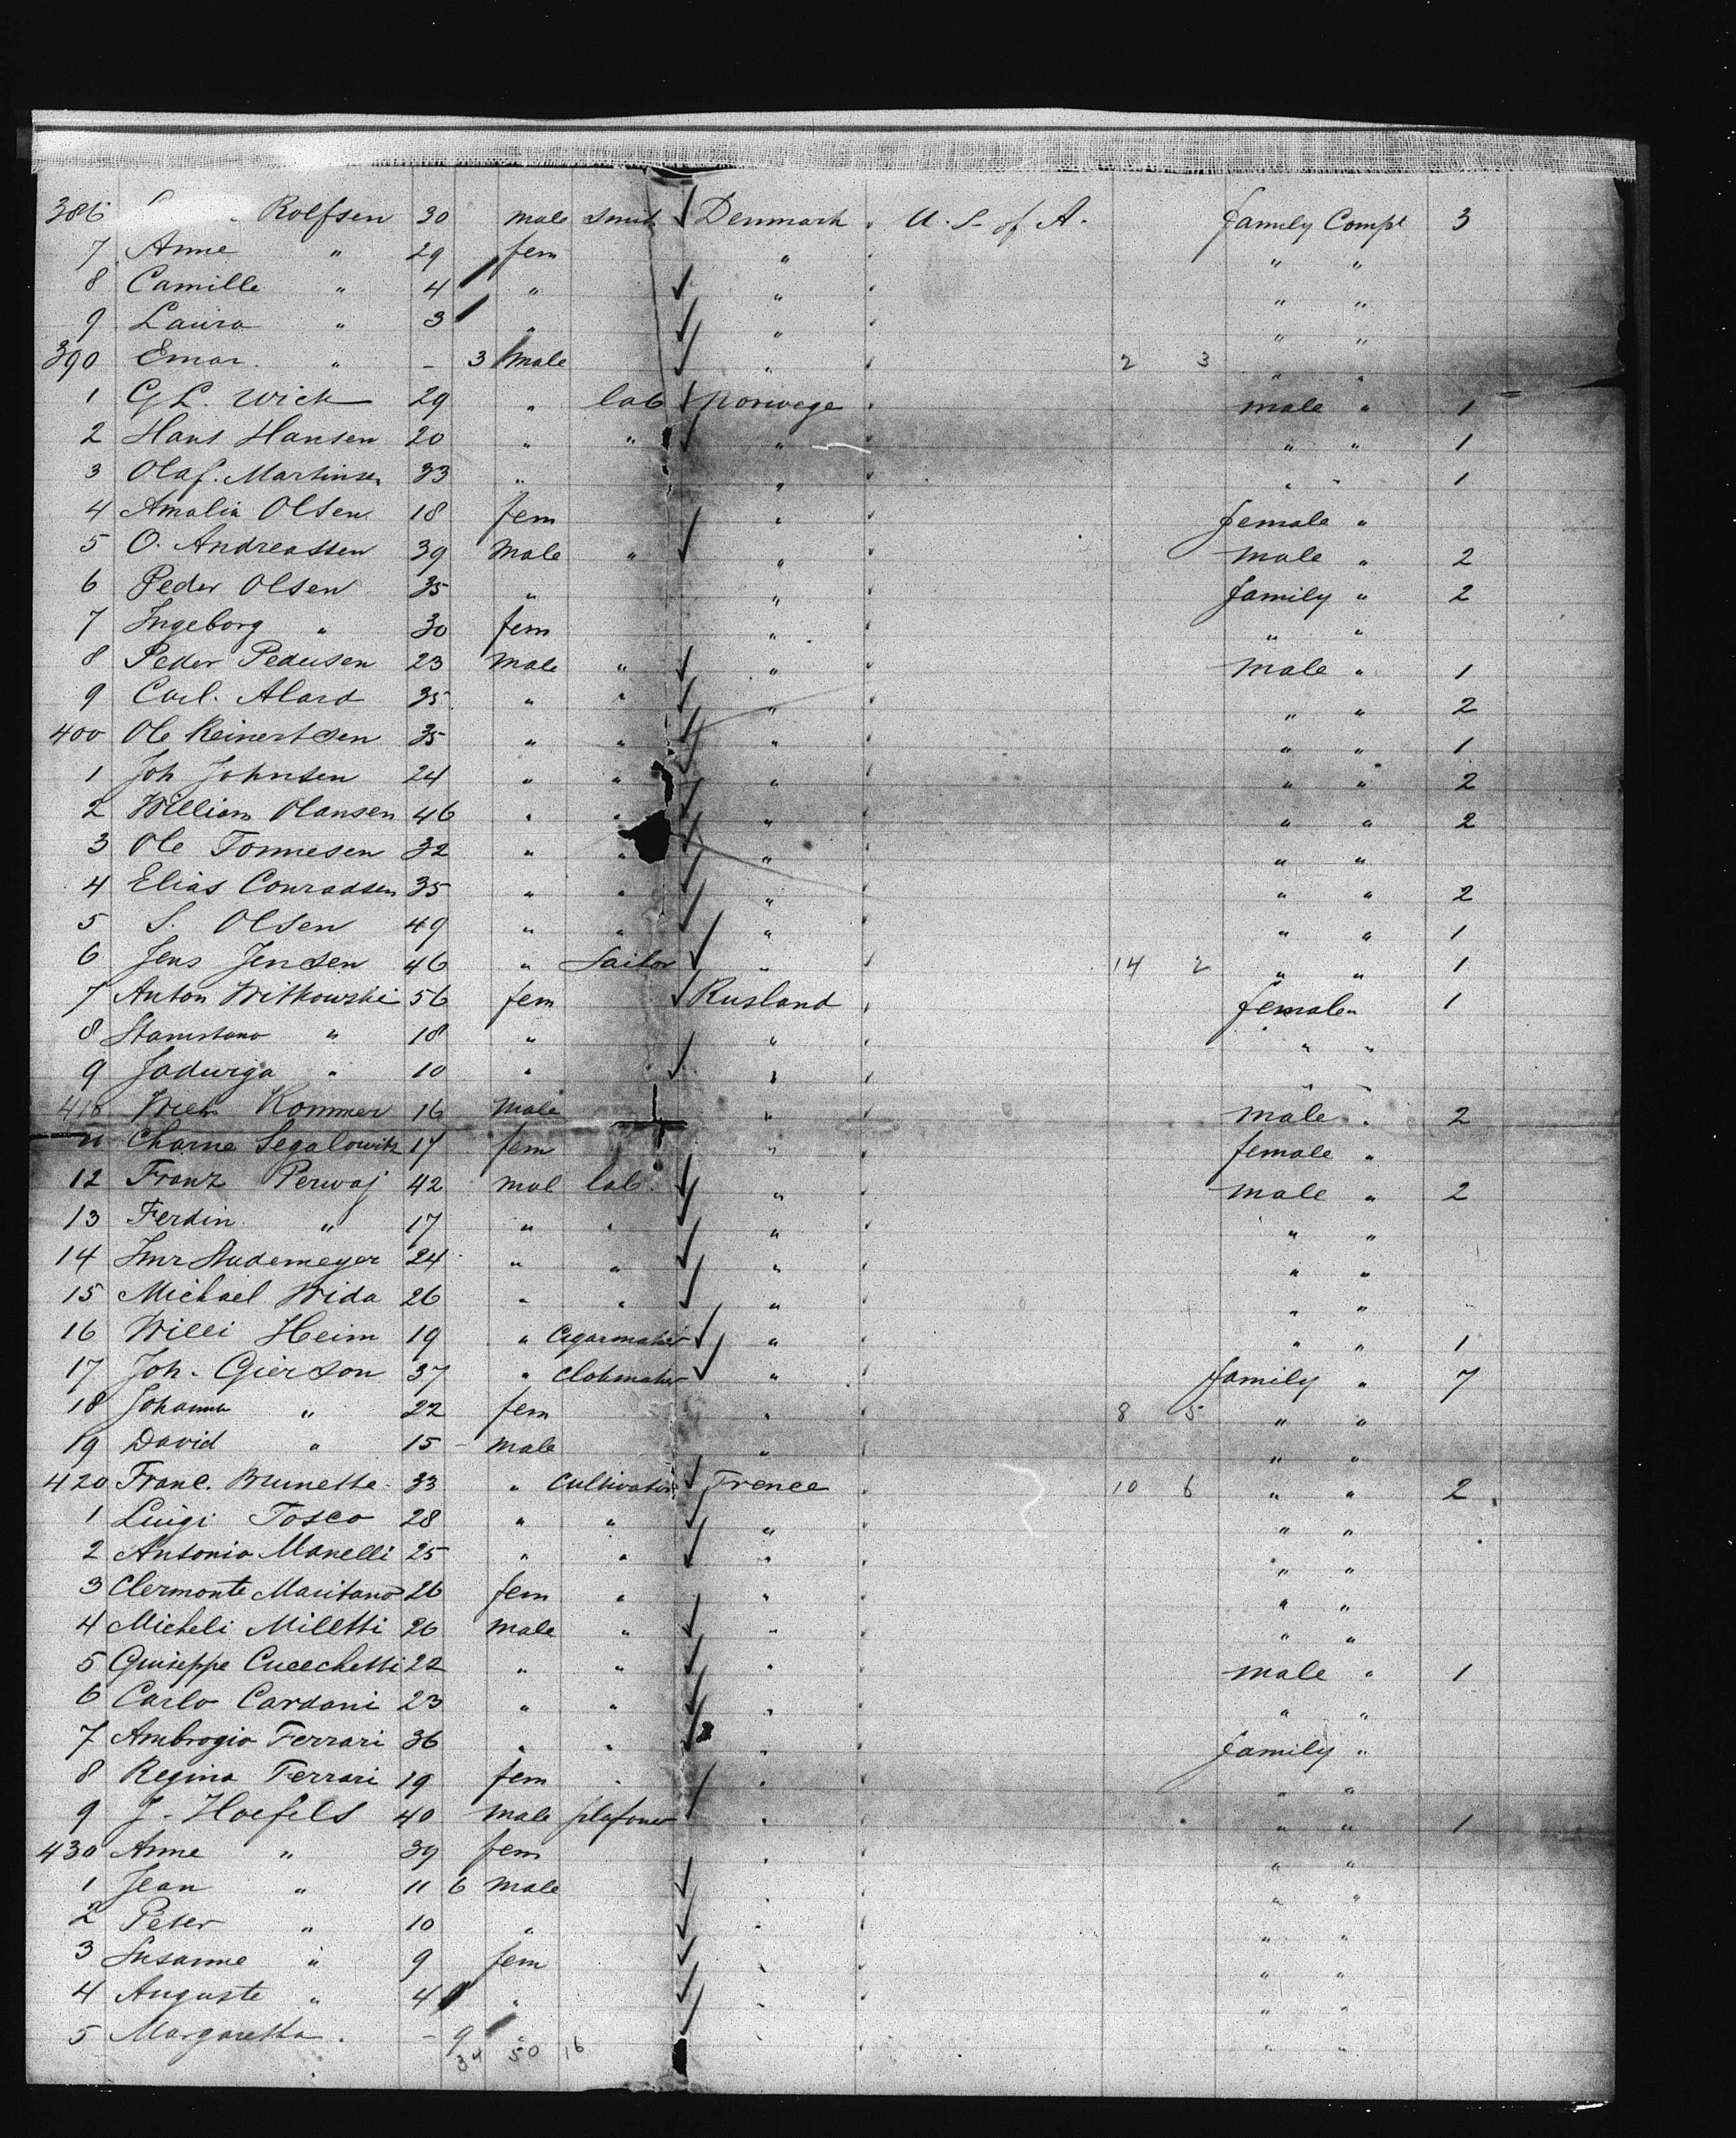 386 Rolfsen 30 male Smit Denmark U. S. of A. family Compt 3
7 Anne " 29 fem " " "
8 Camille " 4 " " " "
9 Laura " 3 " " " "
390 Emar " - 3 male " 2 3 " "
1 G L. Wick 29 " lab Norwege male " 1
2 Hans Hansen 20 " " " " " 1
3 Olaf. Martinsen 33 " " " " 1
4 Amalia Olsen 18 fem " female "
5 O. Andreassen 39 male " " male " 2
6 Peder Olsen 35 " " family " 2
7 Ingeborg " 30 fem " " "
8 Peder Pedersen 23 male " " male " 1
9 Carl. Alard 35 " " " " " 2
400 Ole Reinertsen 35 " " " " " 1
1 Joh Johnsen 24 " " " " " 2
2 William Olansen 46 " " " " " 2
3 Ole Tonnesen 32 " " " " "
4 Elias Conradsen 35 " " " " " 2
5 S. Olsen 49 " " " " " 1
6 Jens Jensen 46 " Sailor " 14 2 " " 1
7 Anton Witkowski 56 fem Rusland female " 1
8 " 18 " " " "
9 Jadwiga " 10 " " " "
410 Kommer 16 male " male " 2
11 Charne Segalowitz 17 fem " female "
12 Franz Perwaj 42 mal lab. " male " 2
13 Ferdin " 17 " " " " "
14 Studemeyer 24 " " " " "
15 Michael Wida 26 " " " " "
16 Willi Heim 19 " Cigarmaker " " " 1
17 Joh. Gierson 37 " Clokmaker " family " 7
18 Johanna " 22 fem " 8 5 " "
19 David " 15 - male " " "
420 Franc. Brunette 33 " Cultivator Frence 10 6 " " 2
1 Luigi Tosco 28 " " " " "
2 Antonio Manelli 25 " " " " "
3 Clermonte Maritano 26 fem " " " "
4 Micheli Miletti 26 male " " " "
5 Guiseppe Cucechetti 22 " " " male " 1
6 Carlo Cardani 23 " " " " "
7 Ambrogio Ferrari 36 " " " family "
8 Regina Ferrari 19 fem " " " "
9 J. Hoefels 40 male plafoner " " " 1
430 Anne " 39 fem " " "
1 Jean " 11 6 male " " "
2 Peter " 10 " " " "
3 Susanne " 9 fem " " "
4 Auguste " 4 " " " "
5 Margaretha. - 9 " " "
34 50 16